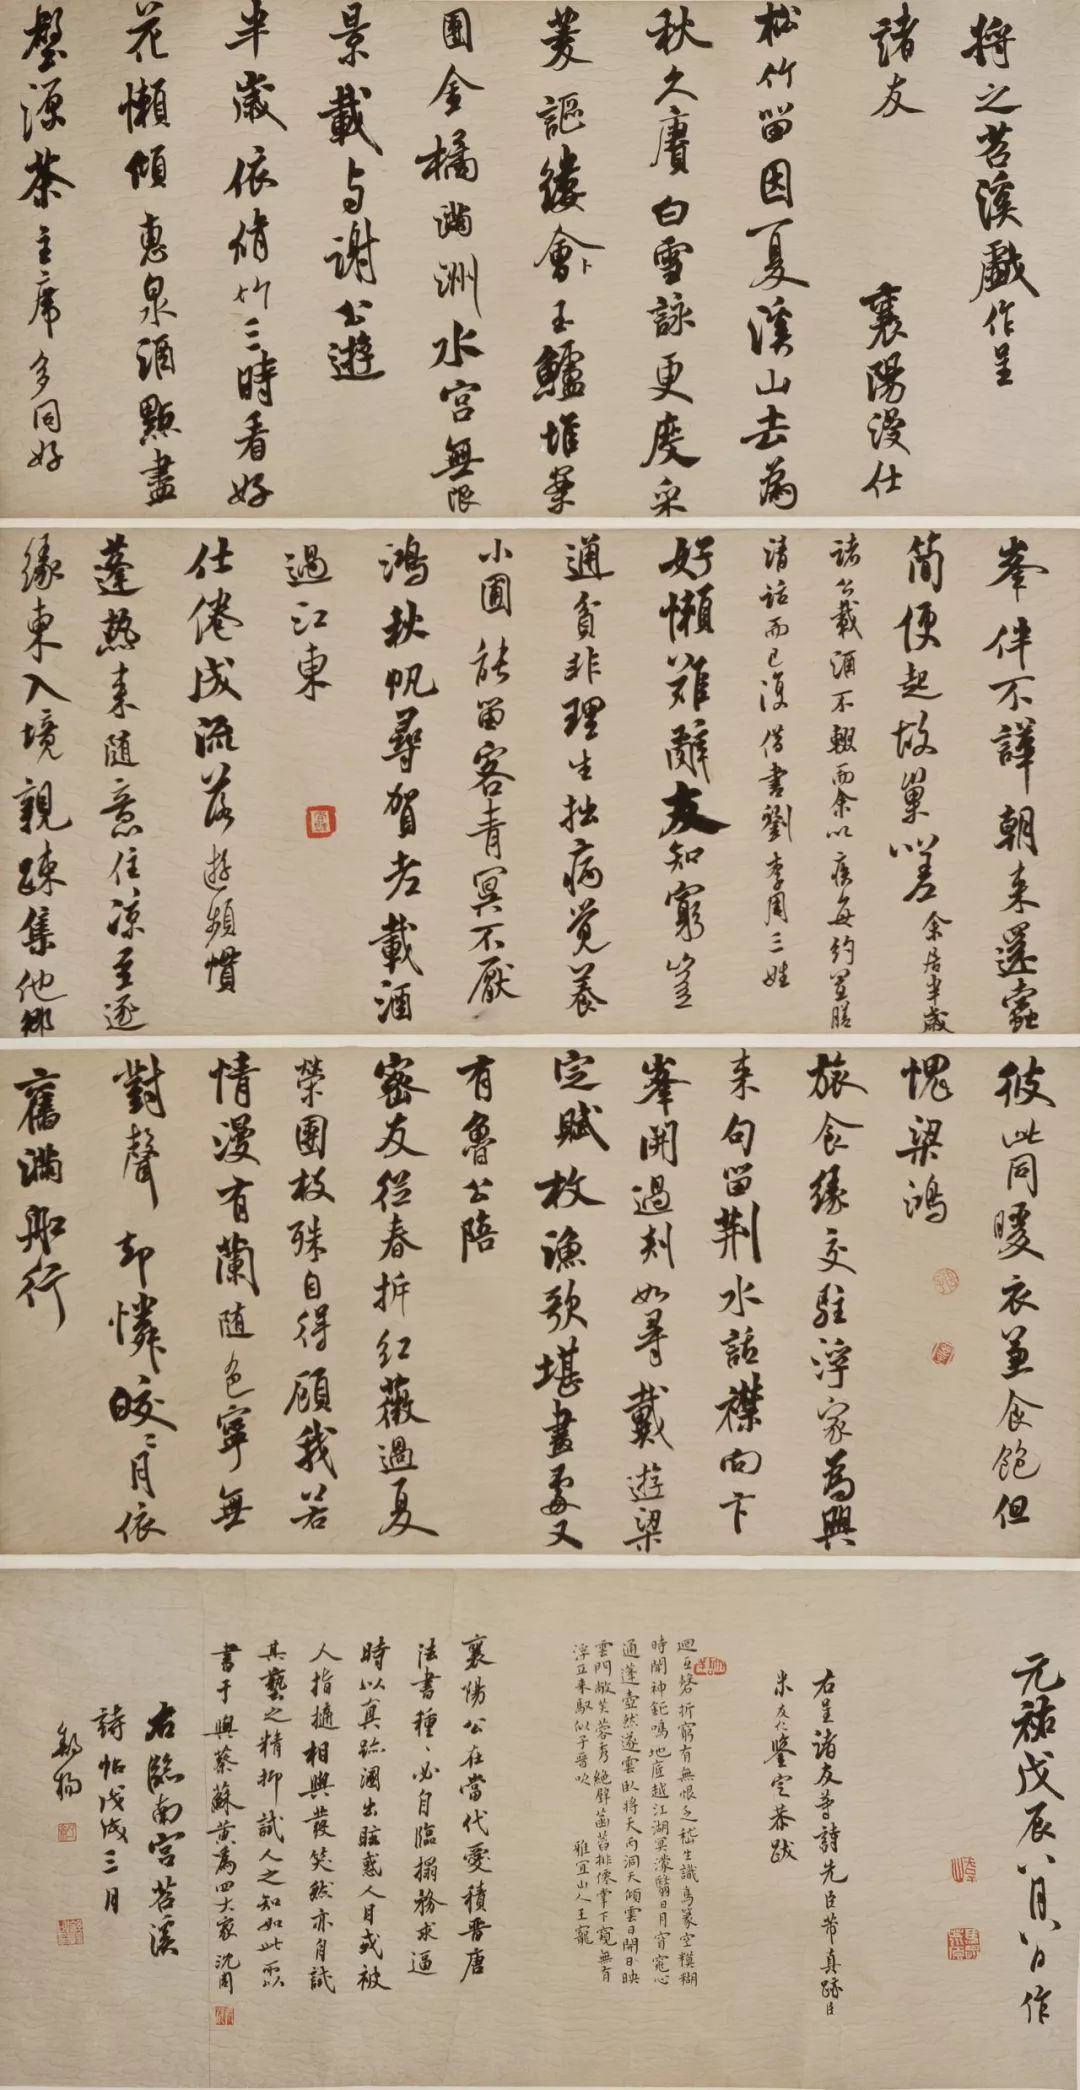 將之苕溪戲作呈
諸友　襄陽漫仕
松竹留因夏溪山去爲
秋久賡白雪詠更度采
菱謳縷會玉鱸堆案
團金橘滿洲水宮無限
景載与謝公遊
半歲依脩竹三時看好
花懶傾惠泉酒點盡
壑源茶主席多同好
羣伴不譁朝来還蠹
簡便起故巢嗟余居半歲
諸公載酒不輟而余以疾每約置膳
清話而已復借書劉李周三姓
好懶難辭友知窮豈
通貧非理生拙病覺養
小圃能留客青冥不厭
鴻秋帆尋賀老載酒
過江東
仕倦成流落遊頻慣
蓬熱来随意住凉至逐
緣東入境親疎集他鄉
彼此同暖衣並食飽但
愧梁鴻
旅食緣交駐浮家爲興
来句留荆水話襟向卞
峯開過剡如尋戴遊梁
定賦枚漁歌堪畫處又
有魯公陪
密友從春拆紅薇過夏
榮團枝殊自得顧我若
情漫有蘭随色寧無
對聲却憐皎〻月依
舊滿舡行
元祐戊辰八月八日作
右呈諸友等詩先臣芾真跡臣
米友仁鑒定恭跋
迴互磬折窮有無恨乏嵇生識鳥篆空糢糊
時聞神鉦鳴地底越江湖冥濛翳日月窅窊心
通蓬壺然遂雲臥將天而洞天傾雲日開日映
雲門敞芙蓉秀絶壁菡萏排像掌下窺無有
浮丘来馭似子晉吹　雅宜山人王寵
襄陽公在當代愛積晉唐
法書種〻必自臨搨務求逼
時以真跡溷出眩惑人目或被
人指擿相與發笑然亦自試
其藝之精抑試人之知如此所以
書于與蔡蘇黄爲四大家沈周
右臨南宫苕溪
詩帖戊戌三月